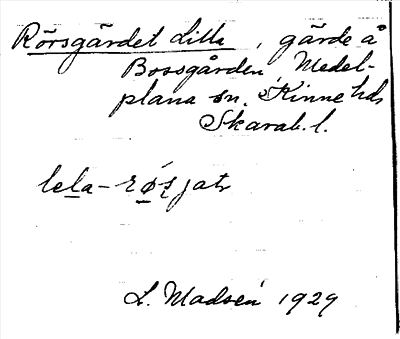 Rörsgärdet Lilla, gärde å
Bossgården Medel-
plana sn. Kinne hds
Skarab. l.
lela-røʂjatr
L. Madsén 1929